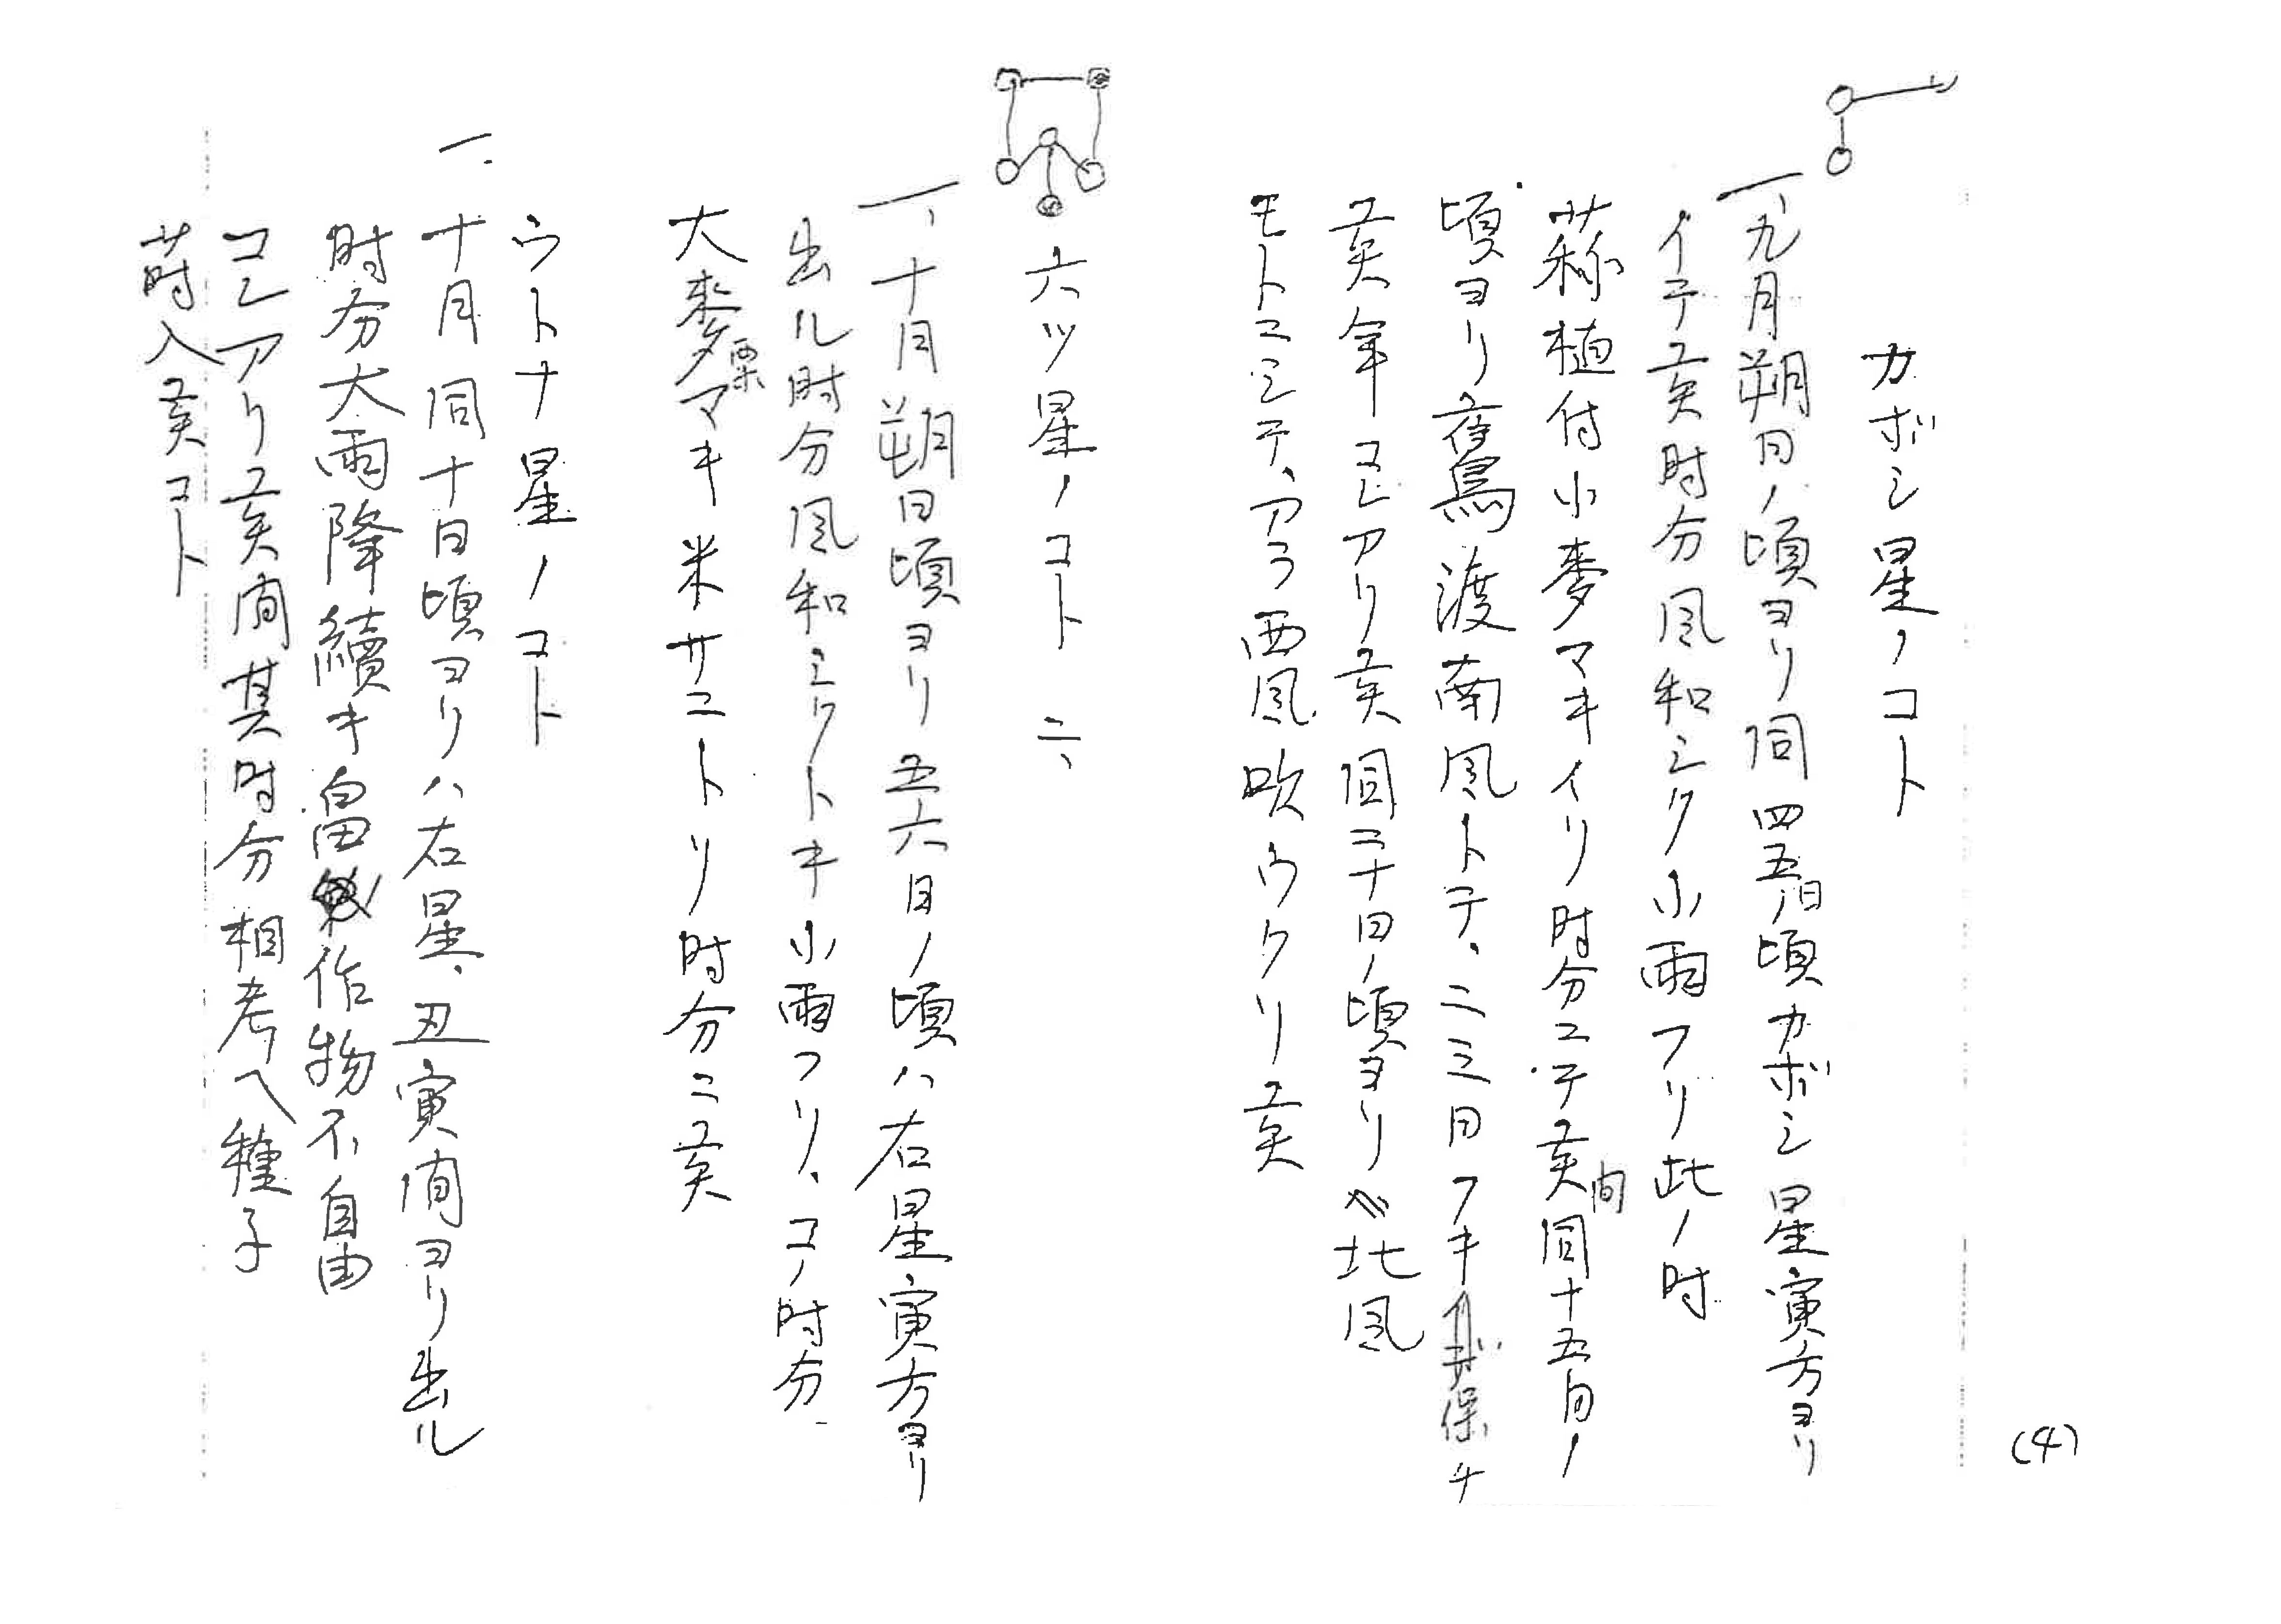 (4)
カボシ星ノコト
一、九月朔日ノ頃ヨリ同四五日頃カボシ星寅方ヨリ
イテ亥时分風和シク小雨フリ此ノ时
蒜植付小麥マキイリ时分ニテ亥間同十五日ノ
頃ヨリ舊鳥渡南風トテ、二三日フキ保チ
亥年コレアリ亥同二十日ノ頃ヨリ北風
モトコシテ、アラ西風吹ウクリ亥
六ツ星ノコト 二、
一、十月朔日頃ヨリ五六日ノ頃ハ右星寅方ヨリ
出ル时分風和シクトキ小雨フリ、コノ时分
大麥粟マキ米サニトリ时分ニ亥
ウトナ星ノコト
一、十月同十日頃ヨリハ右星、丑寅間ヨリ出ル
时分大雨降續キ畠作物不自由
コレアリ亥間其时分相考ヘ種子
蒔入亥コト